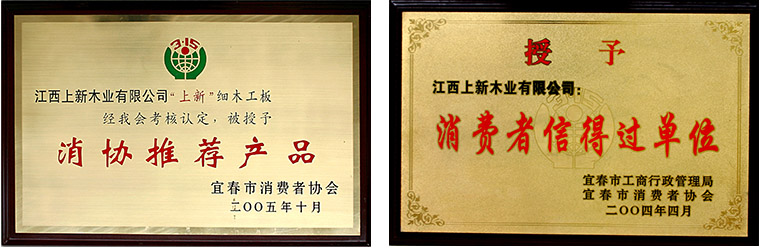 3·15
江西上新木业有限公司“上新”细木工板
经我会考核认定，被授予
消协推荐产品
宜春市消费者协会
二〇〇五年十月
授予
江西上新木业有限公司：
消费者信得过单位
宜春市工商行政管理局
宜春市消费者协会
二〇〇四年四月